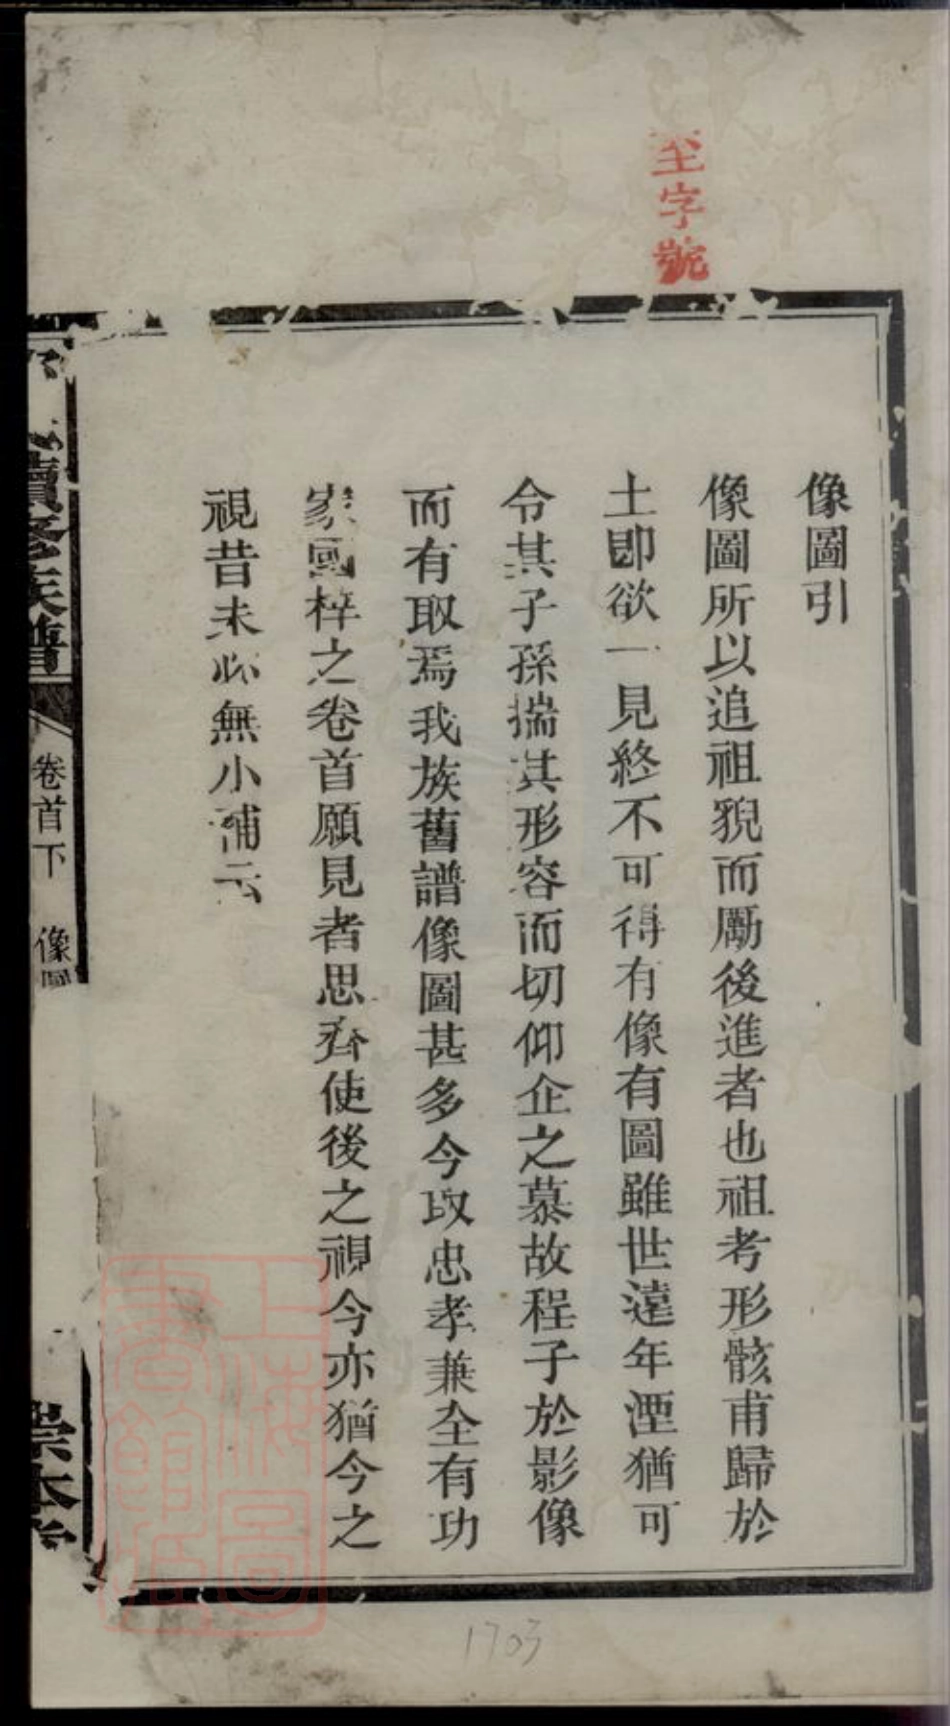 至字號
像圖引
像圖所以追祖貎而勵後進者也祖考形骸甫歸於
土即欲一見終不可得有像有圖雖世遠年湮猶可
令其子孫揣其形容而切仰企之慕故程子於影像
而有取焉我族舊譜像圖甚多今取忠孝兼全有功
家國梓之卷首願見者思齊使後之視今亦猶今之
視昔未必無小補云
續修族譜
卷首下
像圖
崇本
上海圖
書館藏
1703